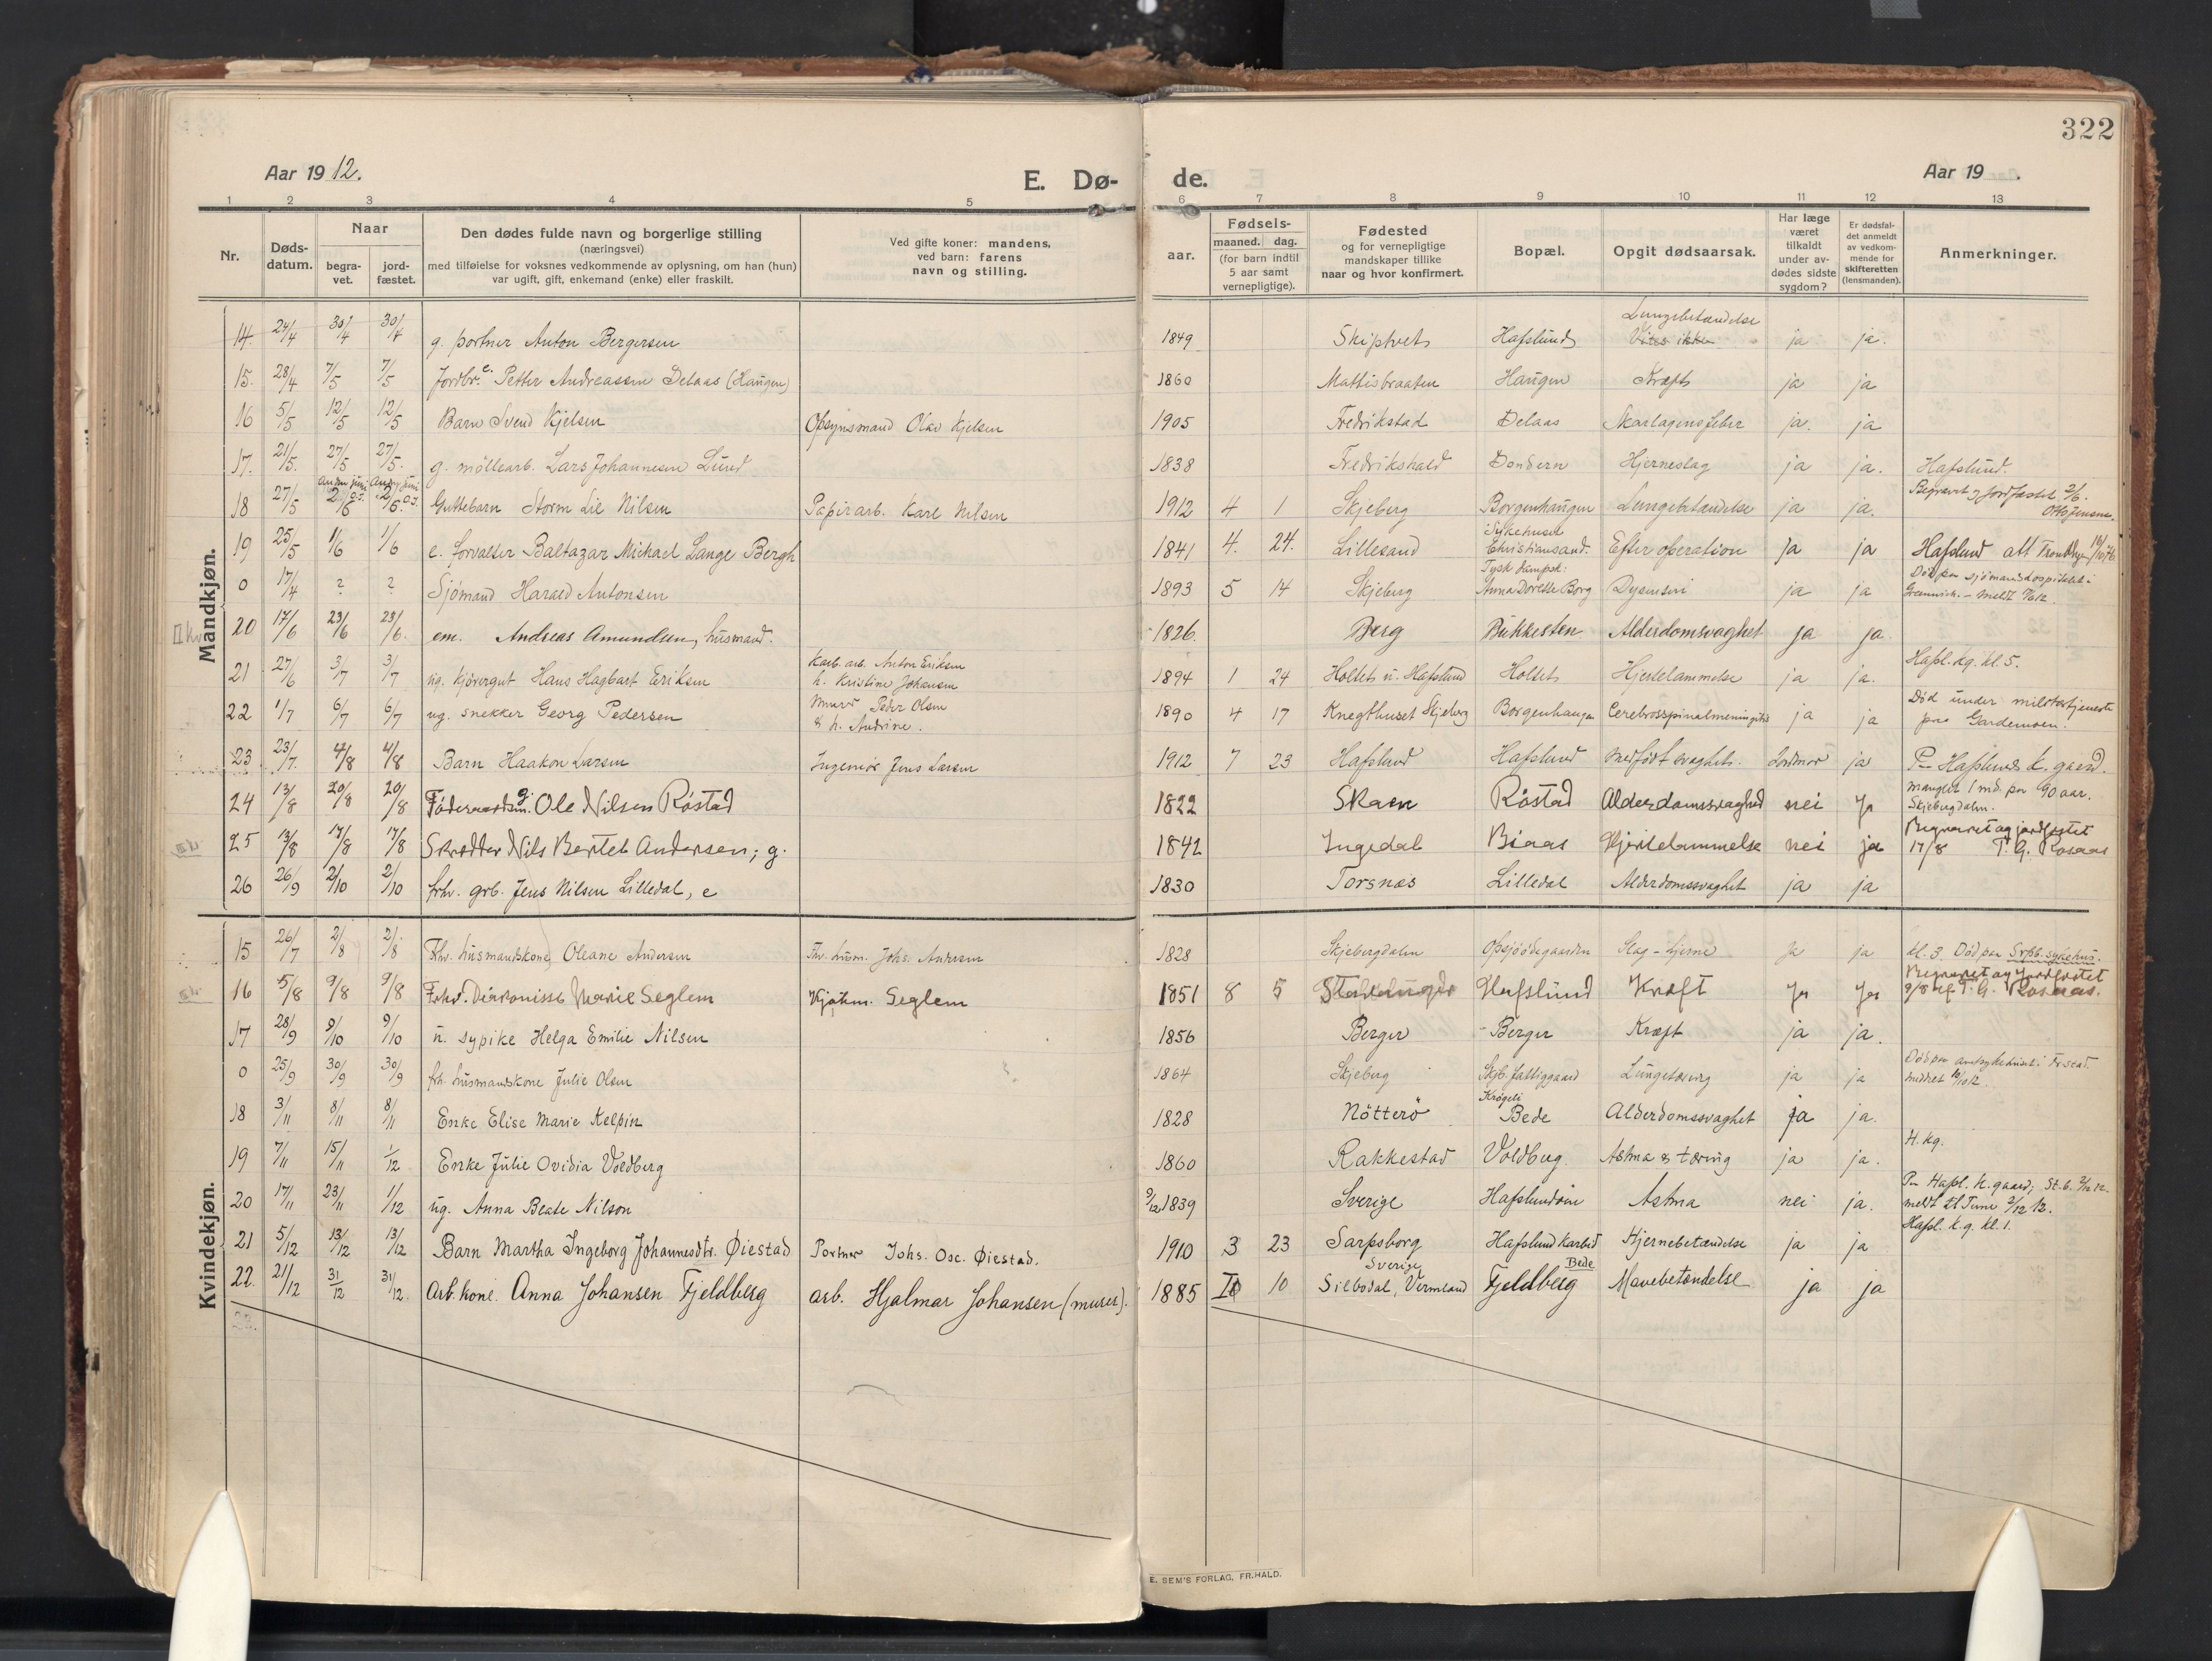 322
Aar 1912.
E. Dø-
de.
Aar 19 .
1 2 3 4 5 6 7 8 9 10 11 12 13
Nr.
Døds-
datum.
Naar
begra-
vet.
jord-
fæstet.
Den dødes fulde navn og borgerlige stilling
(næringsvei)
med tilføielse for voksnes vedkommende av oplysning, om han (hun)
var ugift, gift, enkemand (enke) eller fraskilt.
Ved gifte koner: mandens,
ved barn: farens
navn og stilling.
aar.
Fødsels-
maaned. dag.
(for barn indtil
5 aar samt
vernepligtige).
Fødested
og for vernepligtige
mandskaper tillike
naar og hvor konfirmert.
Bopæl.
Opgit dødsaarsak.
Har læge
været
tilkaldt
under av-
dødes sidste
sygdom?
Er dødsfal-
det anmeldt
av vedkom-
mende for
skifteretten
(lensmanden).
Anmerkninger.
Mandkjøn.
Lungebetændelse
14 24/4 30/4 30/4 g. portner Anton Bergersen 1849 Skiptvet Hafslund Vites ikke ja ja.
15. 28/4 7/5 7/5 Jordbr. e. Petter Andreassen Delaas (Haugen) 1860 Mattisbraaten Haugen Kræft ja ja
16 5/5 12/5 12/5 Barn Svend Kjelsen Opsynsmand Olav Kjelsen 1905 Fredrikstad Delaas Skarlagensfeber ja. ja
17. 21/5. 27/5 27/5. g. møllearb. Lars Johannesen Lund 1838 Fredrikshald Dondern Hjerneslag ja ja. Hafslund.
18 27/5 2/6 2/6 Guttebarn Storm Lie Nilsen Papirarb. Karl Nilsen 1912 4 1 Skjeberg Borgenhaugen Lungebetændelse ja ja. Begravet og jordfæstet 2/6.
Otto Jensen.
Sykehuset
19 25/5 1/6 1/6 e. forvalter Baltazar Michael Lange Bergh 1841 4. 24. Lillesand Christiansand. Efter operation ja ja Hafslund att
Tysk dampsk:
0 17/4 ? ? Sjömand Harald Antonsen 1893 5 14 Skjeberg Anna Dorette Borg Dysenteri ja ja Död paa sjömandshospitalet i
Greenwich. - meldt
20 17/6 23/6 23/6. em. Andreas Amundsen, husmand. 1826. Berg Bukkesten Alderdomsvaghet ja ja
Karb. arb. Anton Eriksen
21 27/6 3/7 3/7 ug. kjøregut Hans Hagbart Eriksen h. Kristine Johansen 1894 1 24 Holtet u. Hafslund Holtet Hjertelammelse ja ja. Hafsl. kg. kl. 5.
Murer Peder Olsen
22 1/7 6/7 6/7 ug. snekker Georg Pedersen & h. Andrine. 1890 4 17 Knegthuset Skjeberg Borgenhaugen Cerebrospinalmeningitis ja ja Död under militærtjeneste
paa Gardemoen.
23 23/7. 4/8 4/8 Barn Haakon Larsen Ingeniør Jens Larsen 1912 7 23 Hafslund Hafslund Medfødt svaghet. Jordmor ja Paa Hafslund k. gaard.
24 13/8 20/8 20/8 Föderaadsm. g. Ole Nilsen Röstad 1822 Skaen Röstad Alderdomssvaghed nei Ja mangler 1 md. paa 90 aar.
Skjebergdalen.
25 13/8 17/8 17/8 Skrædder Nils Bertel Andersen; g. 1842 Ingedal Biaas Hjertelammelse nei ja Begravet og jordfæstet
17/8 T. G. Rosaas
26 26/9 2/10 2/10 frhv. grb. Jens Nilsen Lilledal, e 1830 Torsnæs Lilledal Alderdomssvaghet ja ja
Kvindekjøn.
15 26/7 2/8 2/8 Frhv. husmandskone, Oleane Andersen Fhv. husm. Johs. Andersen 1828 Skjebergdalen Opsjöödegaarden Slag - hjerne ja ja kl. 3. Död paa Srpb. sykehus.
16 5/8 9/8 9/8 Frhv. Diakonisse Marie Seglem Kjøbm. Seglem 1851 8 5 Stavanger Hafslund Kræft Ja Ja Begravet og jordfæstet
9/8 af T. G. Rosaas.
17 28/9 9/10 9/10 u. sypike Helga Emilie Nilsen 1856 Berger Berger Kræft ja ja.
0 25/9 30/9 30/9 frh. husmandskone Julie Olsen 1864 Skjeberg Skjb. fattiggaard Lungetæring ja ja Död paa amtsykehuset i Fr.stad.
meldet 10/10 12.
Krögeli
18 3/11 8/11 8/11 Enke Elise Marie Kelpin 1828 Nötterö Bede Alderdomssvaghet ja ja.
19 7/11 15/11 1/12 Enke Julie Ovidia Voldberg 1860 Rakkestad Voldberg. Astma & tæring ja ja. H. kg.
20 17/11 23/11 1/12 ug. Anna Beate Nilson 9/12 1839 Sverige Hafslundsøen Astma nei ja. Paa Hafsl. k. gaard;
meldt til Tune 2/12 12.
21 5/12 13/12 13/12 Barn Martha Ingeborg Johannesdtr. Øiestad Portner Johs. Osc. Øiestad. 1910 3 23 Sarpsborg Hafslund Karbid Hjernebetændelse ja ja Hafsl. k. g. kl. 1.
Sverige Bede
22. 21/12 31/12 31/12. Arb. kone. Anna Johansen Fjeldberg arb. Hjalmar Johansen (murer). 1885 10 10 Silbodal, Vermland Fjeldberg Mavebetændelse ja ja
23.
E. SEM'S FORLAG, FR.HALD.